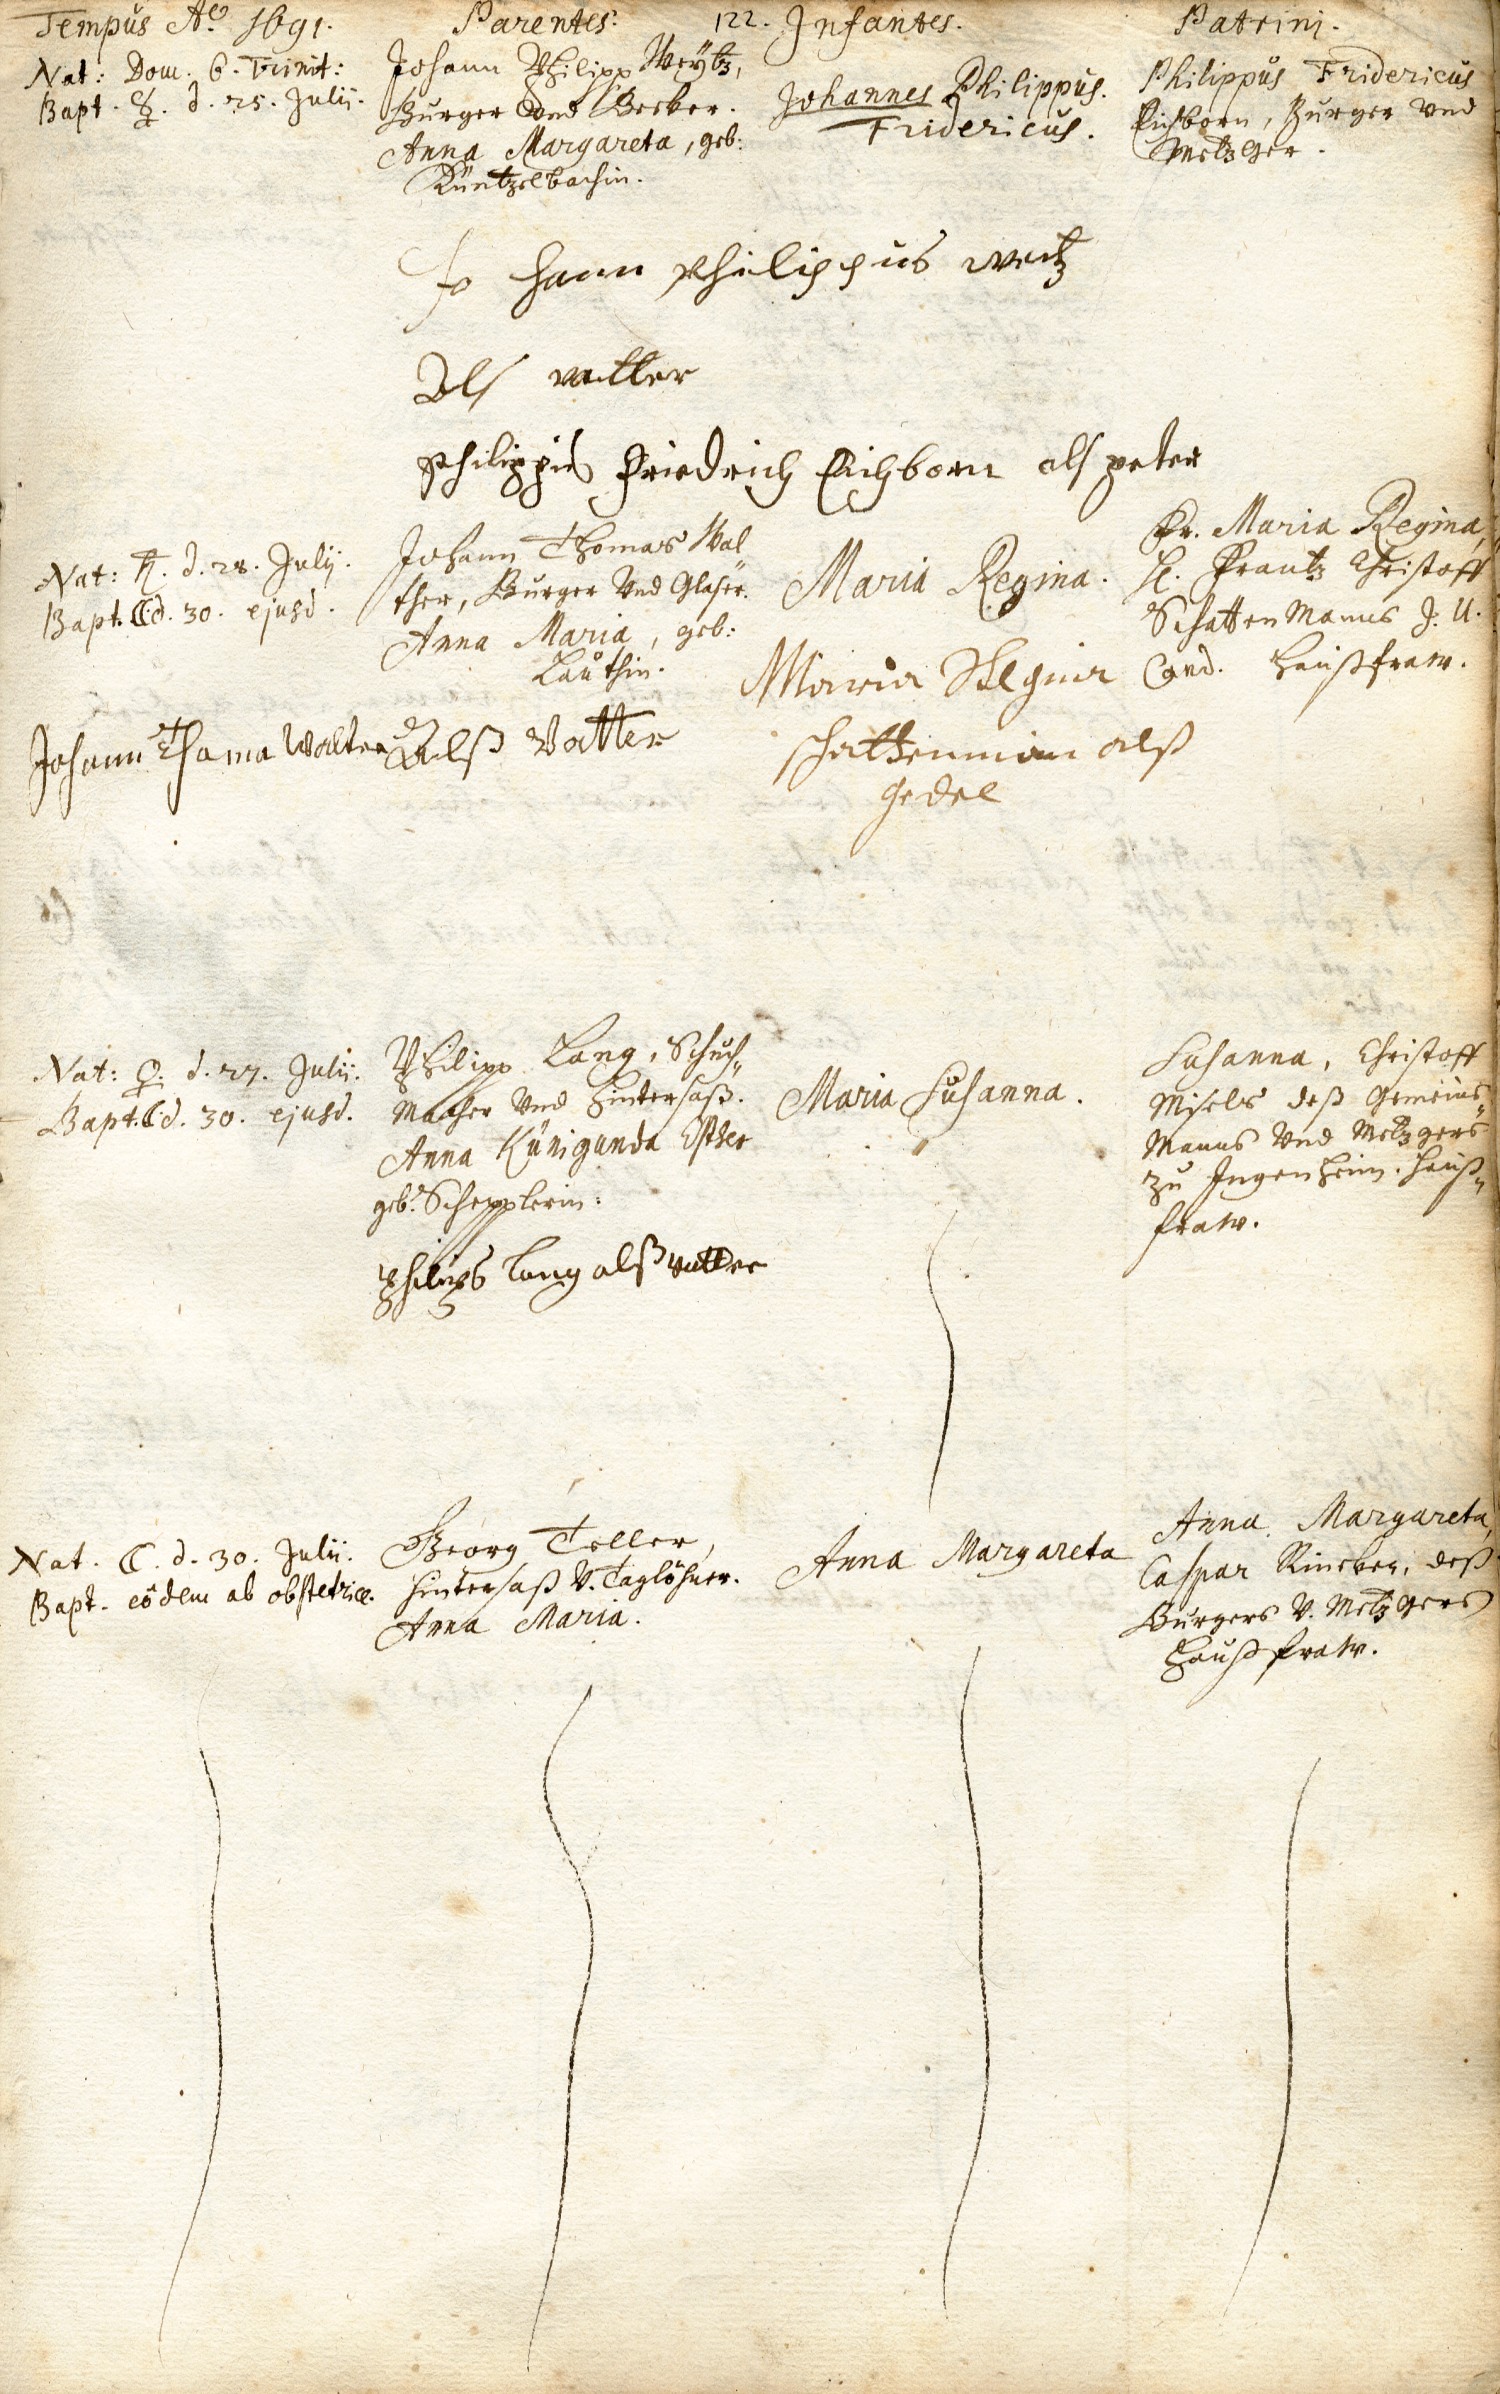 Tempus Aō 1691.
Parentes.
122.
Infantes.
Patrini.
Nat: Dom. 6. Trinit:
Bapt. ☿. d. 25. Julij.
Johann Philipp Weytz,
Burger Vnd Becker.
Anna Margareta, geb:
Küntzelbachin.
Johannes Philippus.
Fridericus.
Philippus Fridericus
Eichborn, Burger Vnd
Metzlger.
Jo hann Philippus weitz
Als vatter
Philippus Friedrich Eichborn als peter
Nat: ♄. d. 28. Julij.
Bapt. ☾ d. 30. ejusd.
Johann Thomas Wal
ther, Burger Vnd Glaser.
Anna Maria, geb:
Lauthin.
Maria Regina.
Fr. Maria Regina,
H. Frantz Christoff
SchattenManns J. U.
Cand. Haußfraw.
Johann Thoma Walter Alß Vatter
Maria Regina
schattenman alß
gedel
Nat: ♀. d. 27. Julij.
Bapt. ☾ d. 30. ejusd.
Philipp Lang, Schuch„
Macher Vnd Hintersaß.
Anna Künigunda Esther
geb. Schepplerin:
Maria Susanna.
Susanna, Christoff
Misels deß Gemeins„
Manns Vnd Metzgers
zu Ingenheim. Hauß„
fraw.
Philips Lang alß vatter
Nat. ☾. d. 30. Julij.
Bapt. eōdem ab obstetrice.
Georg Teller,
Hintersaß V. Taglöhner.
Anna Maria.
Anna Margareta
Anna Margareta,
Caspar Rincker, deß
Burgers V. Metzgers
Haußfraw.